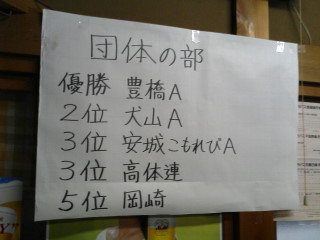 団体の部
優勝 豊橋A
2位 犬山A
3位 安城こもれびA
3位 高体連
5位 岡崎